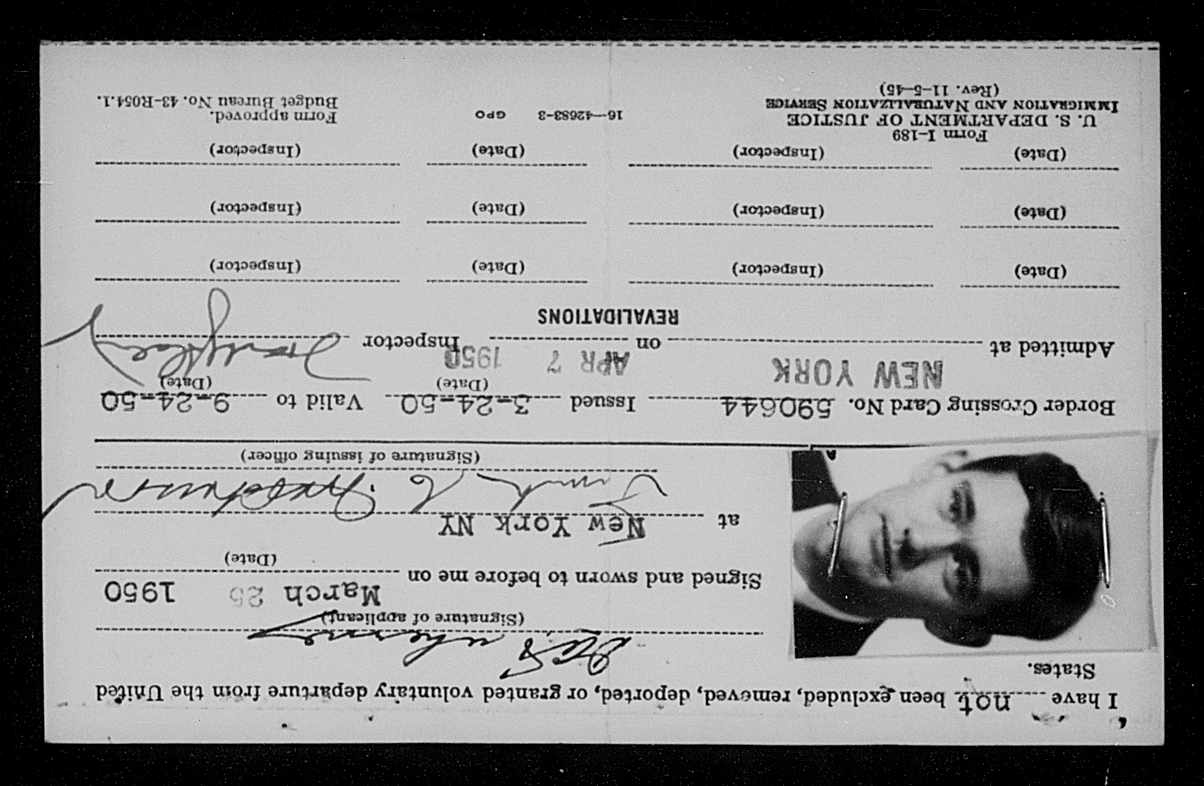 I have not been excluded, removed, deported, or granted voluntary departure from the United
States.
(Signature of applicant)
March 25 1950
Signed and sworn to before me on
(Date)
at New York NY
(Signature of issuing officer)
Border Crossing Card No. 590644 Issued 3-24-50 Valid to 9-24-50
(Date) (Date)
NEW YORK APR 7 1950
Admitted at on Inspector
REVALIDATIONS
(Date) (Inspector) (Date) (Inspector)
(Date) (Inspector) (Date) (Inspector)
(Date) (Inspector) (Date) (Inspector)
Form I-189
U. S. DEPARTMENT OF JUSTICE
IMMIGRATION AND NATURALIZATION SERVICE
(Rev. 11-5-45)
16—42683-3 GPO
Form approved.
Budget Bureau No. 43-R054.1.